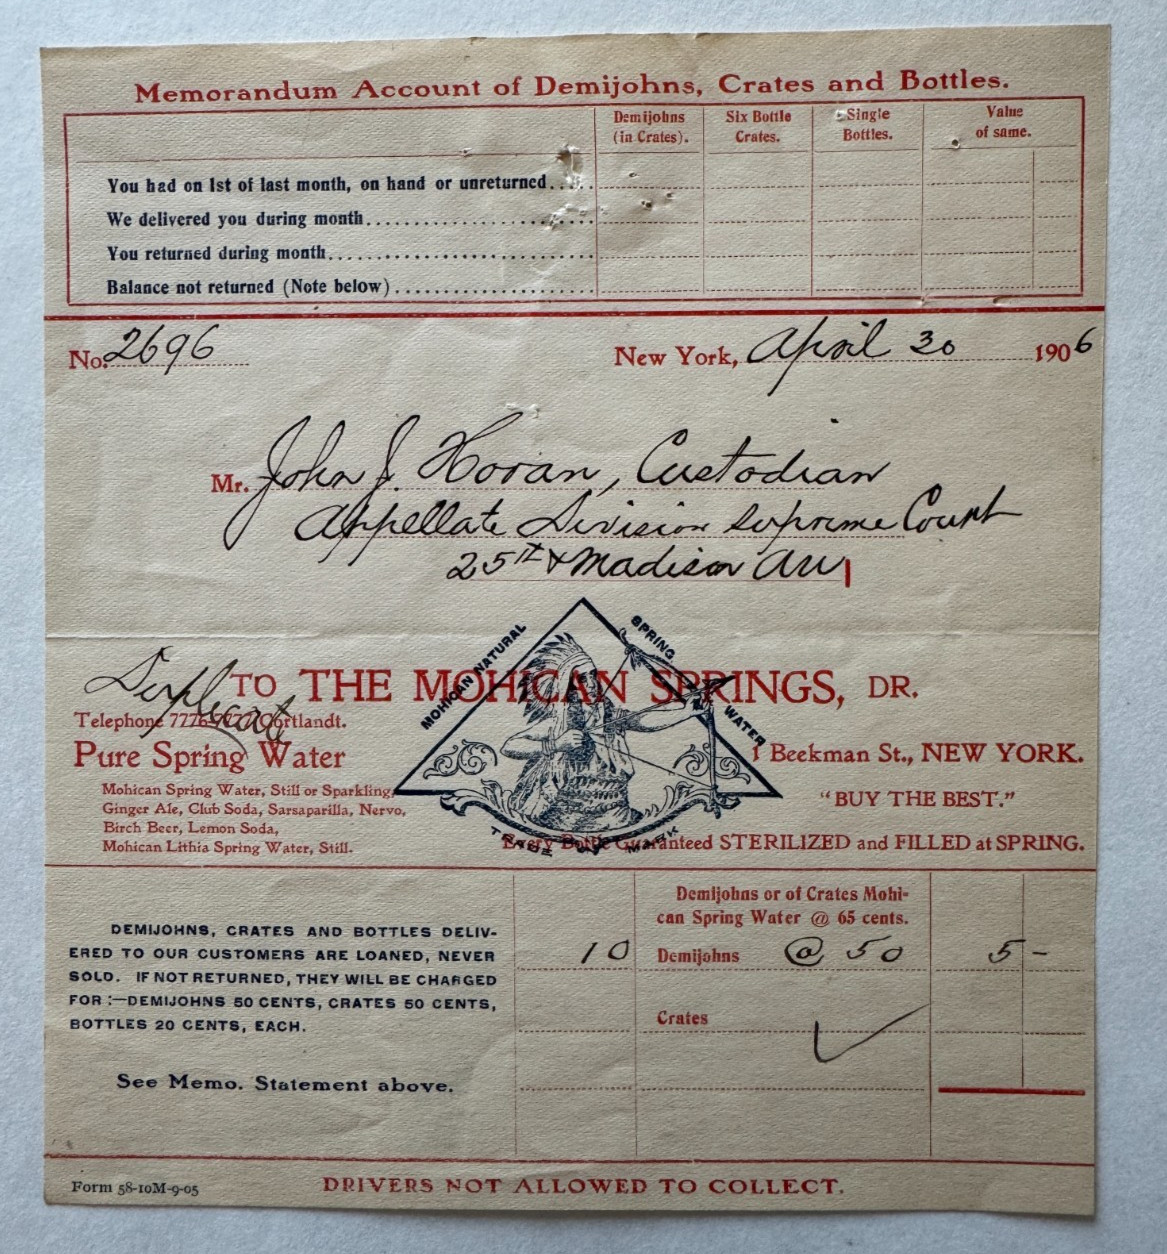 Memorandum Account of Demijohns, Crates and Bottles.
Demijohns (in Crates). Six Bottle Crates. Single Bottles. Value of same.
You had on 1st of last month, on hand or unreturned.....
We delivered you during month..........................
You returned during month..............................
Balance not returned (Note below)......................
No. 2696 New York, April 30 1906
Mr. John J. Horan, Custodian
Appellate Division Supreme Court
25th & Madison Av
MOHICAN NATURAL SPRING WATER
Duplicate
TO THE MOHICAN SPRINGS, DR.
Telephone 7776 Cortlandt.
Pure Spring Water
1 Beekman St., NEW YORK.
Mohican Spring Water, Still or Sparkling,
Ginger Ale, Club Soda, Sarsaparilla, Nervo,
Birch Beer, Lemon Soda,
Mohican Lithia Spring Water, Still.
"BUY THE BEST."
TRADE MARK
Every Bottle Guaranteed STERILIZED and FILLED at SPRING.
DEMIJOHNS, CRATES AND BOTTLES DELIV-
ERED TO OUR CUSTOMERS ARE LOANED, NEVER
SOLD. IF NOT RETURNED, THEY WILL BE CHARGED
FOR :—DEMIJOHNS 50 CENTS, CRATES 50 CENTS,
BOTTLES 20 CENTS, EACH.
See Memo. Statement above.
Demijohns or of Crates Mohi-
can Spring Water @ 65 cents.
10 Demijohns @ 50 5 -
Crates
Form 58-10M-9-05
DRIVERS NOT ALLOWED TO COLLECT.